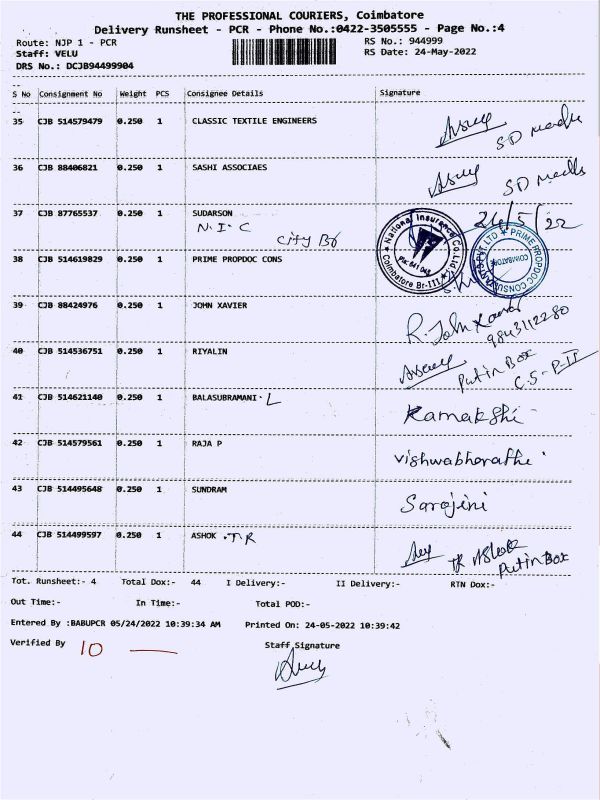 THE PROFESSIONAL COURIERS, Coimbatore
Delivery Runsheet - PCR - Phone No.:0422-3505555 - Page No.:4
Route: NJP 1 - PCR RS No.: 944999
Staff: VELU RS Date: 24-May-2022
DRS No.: DCJB94499904
S No Consignment No Weight PCS Consignee Details Signature
35 CJB 514579479 0.250 1 CLASSIC TEXTILE ENGINEERS SD
36 CJB 88406821 0.250 1 SASHI ASSOCIAES SD
37 CJB 87765537 0.250 1 SUDARSON 24/5/22
N.I.C
City Bo
National Insurance Co. Ltd.
Coimbatore Br-III
PRIME PROPDOC CONSULTANTS PVT LTD
COIMBATORE
38 CJB 514619829 0.250 1 PRIME PROPDOC CONS
39 CJB 88424976 0.250 1 JOHN XAVIER R. John Xavier
9843112280
40 CJB 514536751 0.250 1 RIYALIN Put in Box
C.S-P-II
41 CJB 514621140 0.250 1 BALASUBRAMANI. L Ramakshi
42 CJB 514579561 0.250 1 RAJA P Vishwabharathi
43 CJB 514495648 0.250 1 SUNDRAM Sarojini
44 CJB 514499597 0.250 1 ASHOK .T.R TR Ashok
Put in Box
Tot. Runsheet:- 4 Total Dox:- 44 I Delivery:- II Delivery:- RTN Dox:-
Out Time:- In Time:- Total POD:-
Entered By :BABUPCR 05/24/2022 10:39:34 AM Printed On: 24-05-2022 10:39:42
Verified By 10 Staff Signature